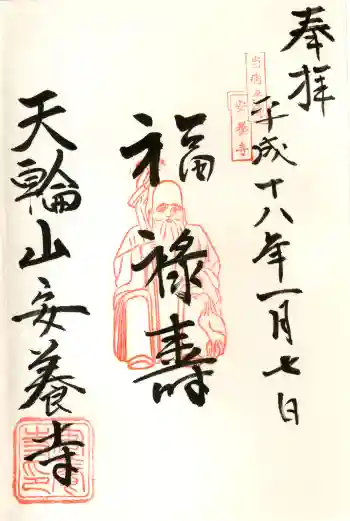 奉拝
平成十八年一月七日
安養寺
福禄寿
天輪山安養寺